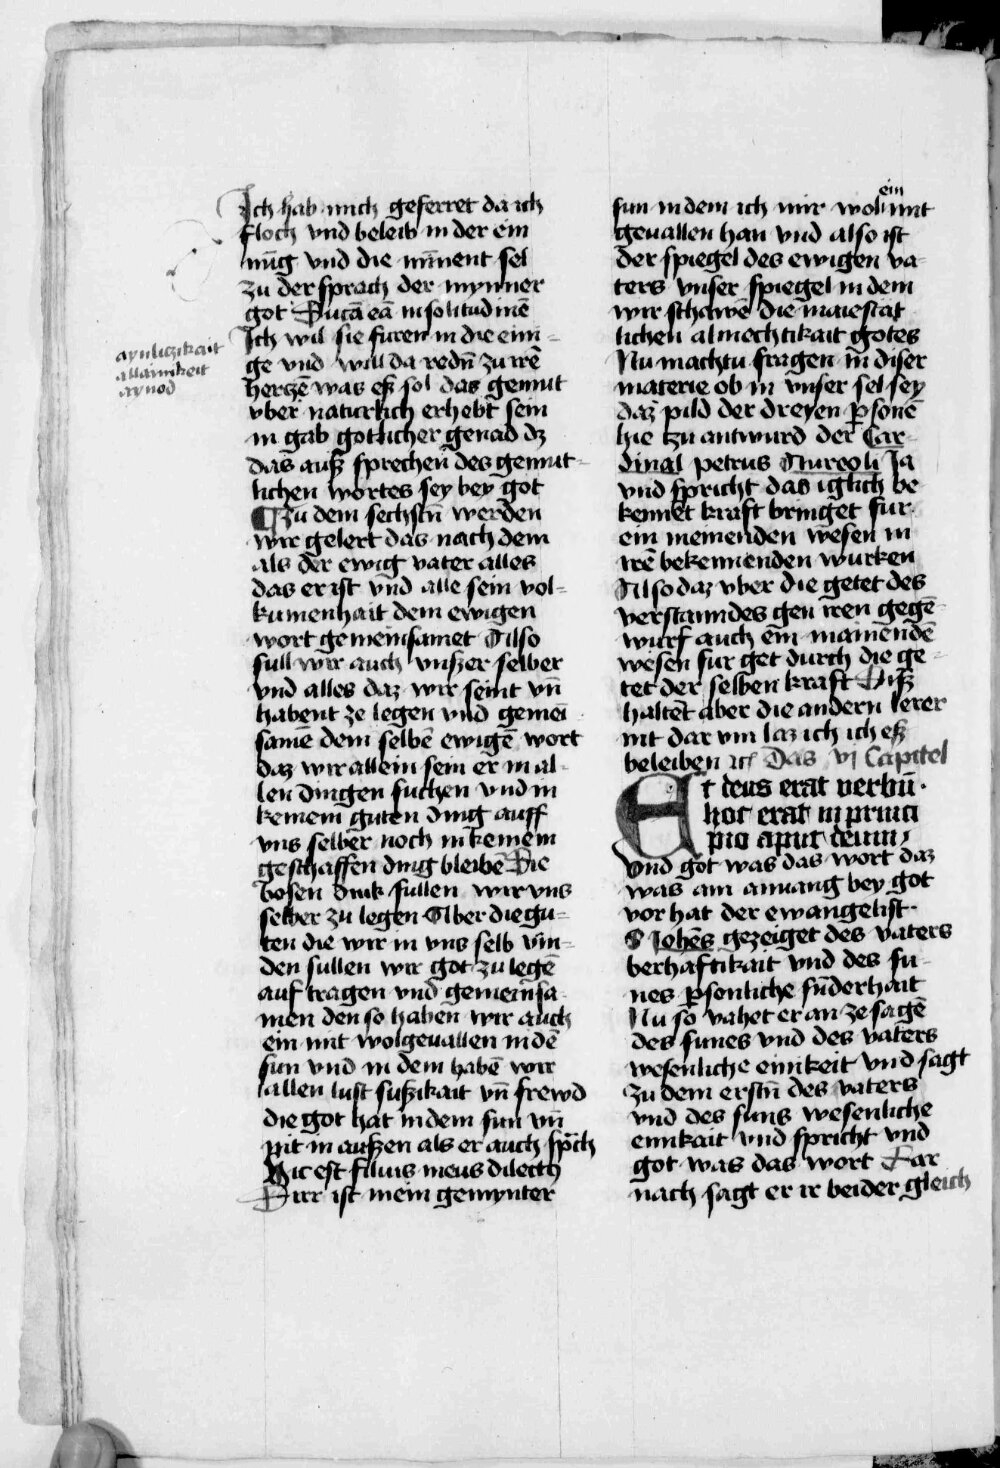 Ich hab mich geferret da ich
floch vnd beleib in der ein
nūg vnd die mīnent sel
zu der sprach der mynner
got Ducā eā in solitudinē
Ich wil sie furen in die eini-
ge vnd will da redn̄ zu irē
herczē was eß sol das gemut
vber naturlich erhebt sein
in gab gotlicher genad dz
das auß sprechen des gemut-
lichen wortes sey bey got
Zu dem sechstn̄ werden
wir gelert das nach dem
als der ewig vater alles
das er ist vnd alle sein vol-
kumenhait dem ewigen
wort gemeinsamet Also
sull wir auch vnßer selber
vnd alles daz wir seint vn̄
habent ze legen vnd gemei
samē dem selbē ewigē wort
daz wir allein sein er in al
len dingen suchen vnd in
keinem guten ding auff
vns selber noch in keinem
geschaffen ding bleibē Die
bosen druk sullen wir vns
selber zu legen Aber die gu-
ten die wir in vns selb vin-
den sullen wir got zu legē
auf tragen vnd gemeinsa
men den so haben wir auch
ein mit wolgeuallen in dē
sun vnd in dem habē wir
allen lust sußikait vn̄ frewd
die got hat in dem sun vn̄
mit im außen als er auch sp̄ch
Hic est filius meus dilectꝰ
Dirr ist mein gemynter
aynluczikait
allainikeit
aynod
ein
sun in dem ich mir wol mit
geuallen han vnd also ist
der spiegel des ewigen va-
ters vnser spiegel in dem
wir schawē die maiestat
lichen almechtikait gotes
Nu machtu fragen in diser
materie ob in vnser sel sey
daz pild der dreyen p̲sonē
hie zu antwurd der Car-
dinal petrus Aureoli Ja
vnd spricht das iglich be
kennet kraft bringet fur
ein meinenden wesen in
irē bekennenden wurken
Also daz vber die getet des
verstanndes gen iren gegē-
wurf auch ein mainēndē
wesen fur get durch die ge-
tet der selben kraft Diß
haltet aber die andern lerer
nit dar vm laz ich ich eß
beleiben Das vj Capitel
Et deus erat verbū.
hoc erat in princi
pio aput deum,
Vnd got was das wort daz
was am anuang bey got
vor hat der ewangelist.
S Johēs gezeiget des vaters
berhaftikait vnd des su-
nes p̲senliche sūderhait
Nu so vahet er an ze sagē
des sunes vnd des vaters
wesenliche einikeit vnd sagt
zu dem erstn̄ des vaters
vnd des suns wesenliche
einikait vnd spricht vnd
got was das wort Dar
nach sagt er ir beider gleich